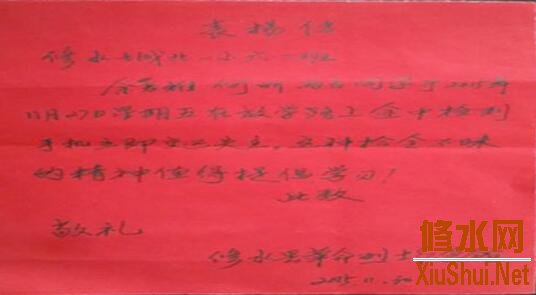 表扬信
修水县城北一小六一班
余 何昕 两名同学于2015年
11月27日星期五在放学路上 中检到
手机立即 失主，这种检金不昧
的精神值得提倡学习！
此致
敬礼
修水县革命烈士
2015.11.30
修水网
XiuShui.Net